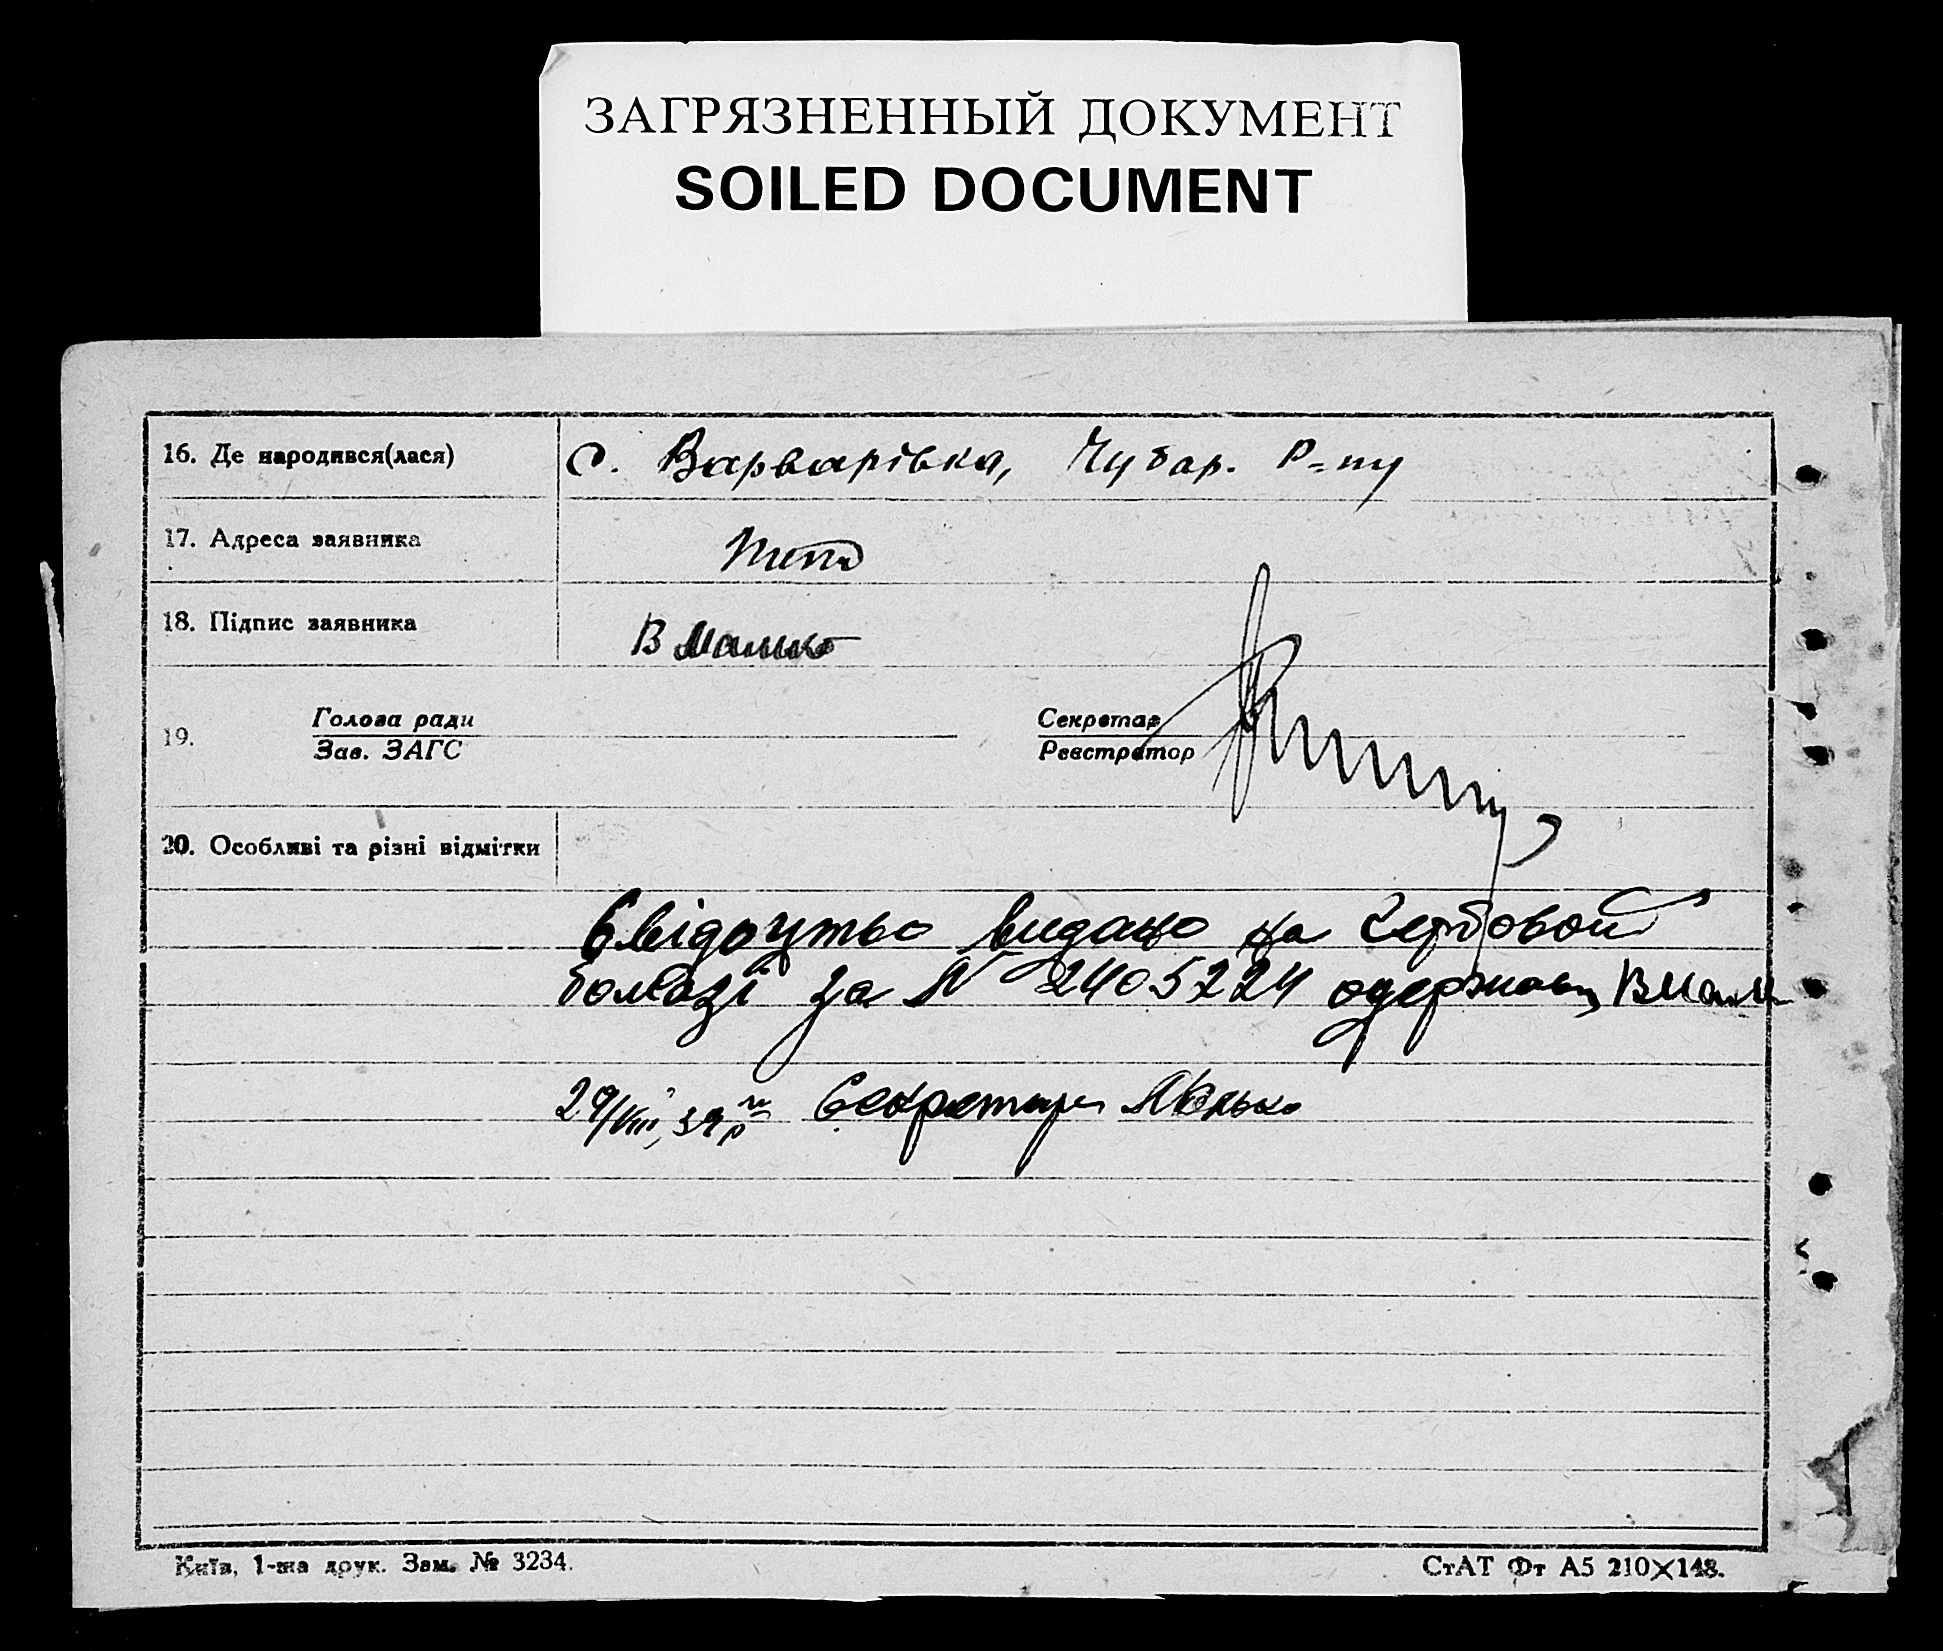 ЗАГРЯЗНЕННЫЙ ДОКУМЕНТ
SOILED DOCUMENT
16. Де народився(лася) с. Варварівка, Чубар. Р-ну
17. Адреса заявника
18. Підпис заявника В Малико
19. Голова ради Секретар
Зав. ЗАГС Реєстратор
20. Особливі та різні відмітки
Свідоцтво видано на Гербовой
бомазі за № 2405224 одержав
29/VIII, 39 р Секретарь
Київ, 1-ша друк. Зам. № 3234.
СтАТ Фт А5 210×148.